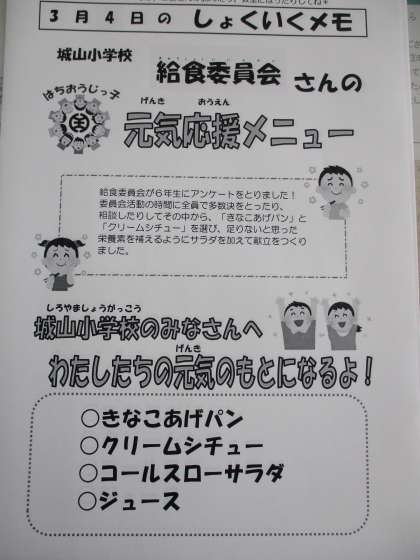 3月4日の しょくいくメモ
城山小学校
給食委員会 さんの
はちおうじっ子
げんき おうえん
元気応援メニュー
給食委員会が6年生にアンケートをとりました！
委員会活動の時間に全員で多数決をとったり、
相談したりしてその中から、「きなこあげパン」と
「クリームシチュー」を選び、足りないと思った
栄養素を補えるようにサラダを加えて献立をつくり
ました。
しろやましょうがっこう
城山小学校のみなさんへ
げんき
わたしたちの元気のもとになるよ！
○きなこあげパン
○クリームシチュー
○コールスローサラダ
○ジュース